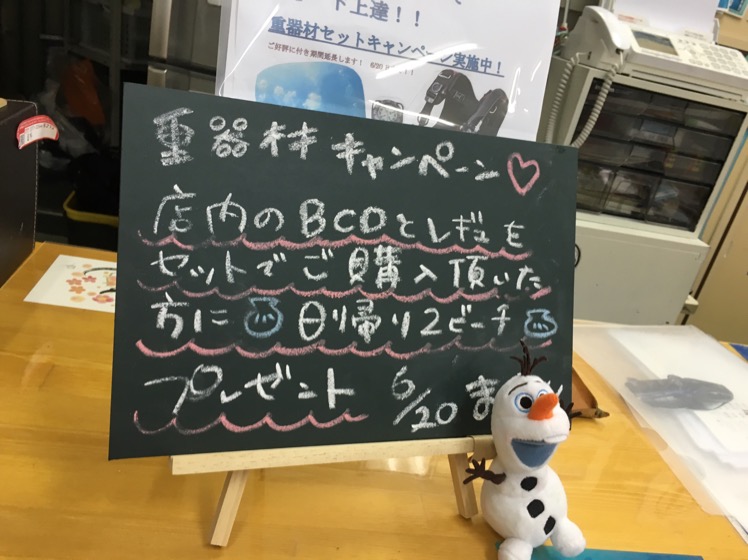 ート上達！！
重器材セットキャンペーン実施中！
ご好評に付き期間延長します！ 6/20
重器材キャンペーン♡
店内のBCDとレギュを
セットでご購入頂いた
方に 日帰り2ビーチ
プレゼント 6/20ま